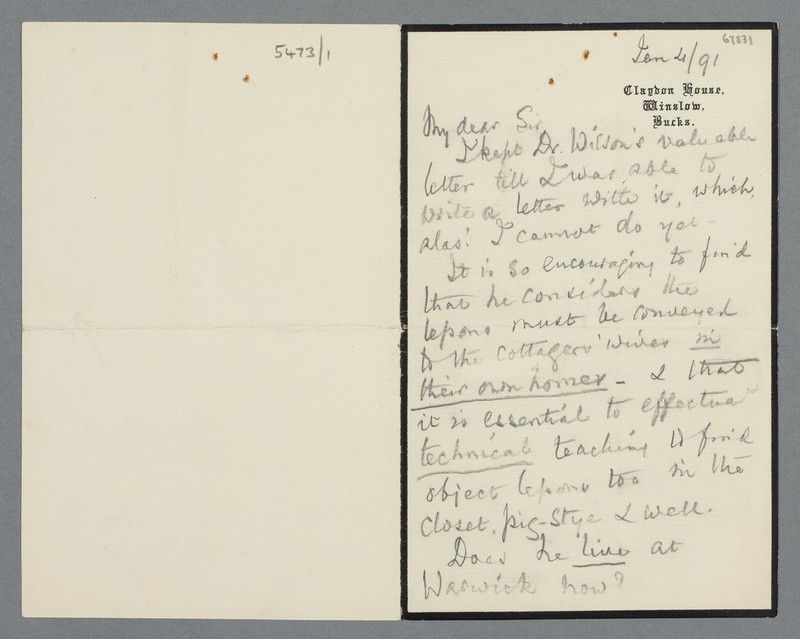 5473/1
67831
Jan 4/91
Claydon House,
Winslow,
Bucks.
My dear Sir
I kept Dr. Wilson's valuable
letter till I was able to
write a letter with it, which,
alas! I cannot do yet -
It is so encouraging to find
that he considers the
lessons must be conveyed
to the cottagers' wives in
their own homes - & that
it is essential to effectual
technical teaching to find
object lessons too in the
closet, pig-stye & well.
Does he live at
Warwick now?